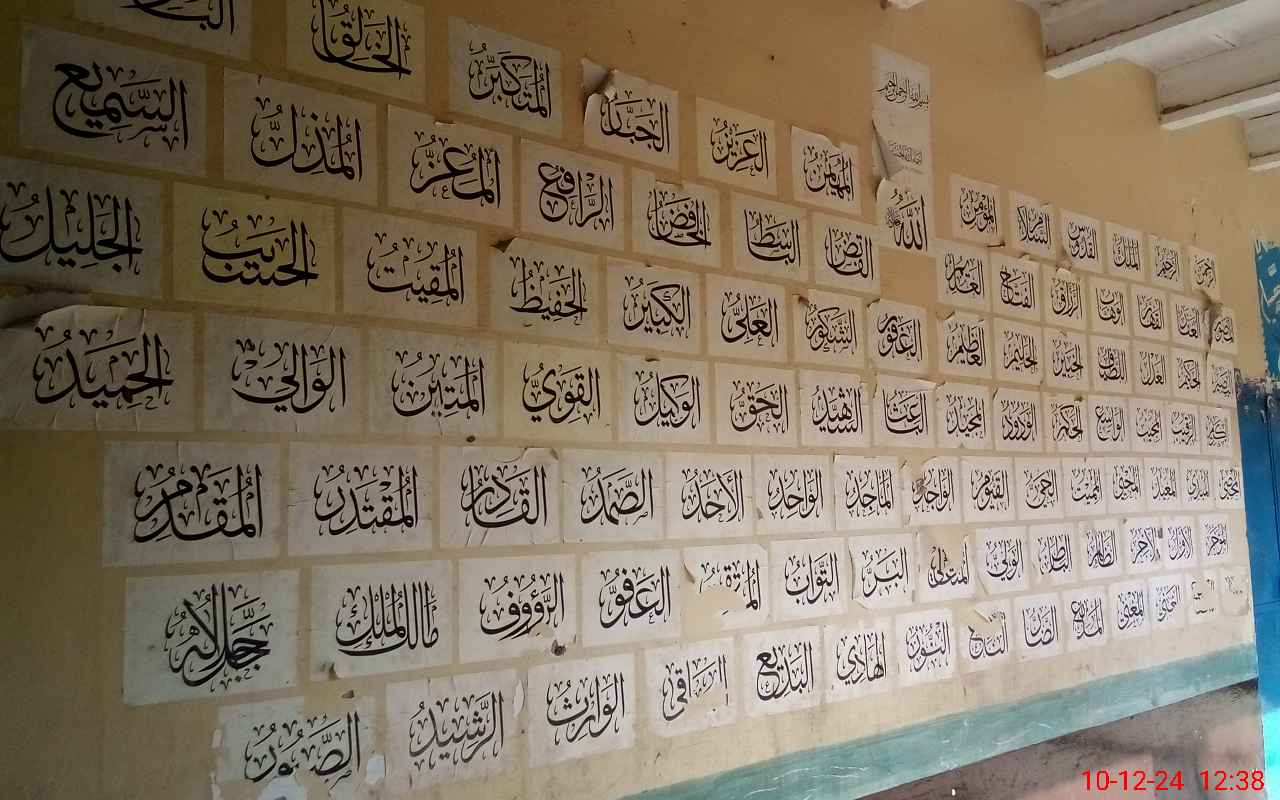 بسم الله الرحمن الرحيم
الله
الرحمن الرحيم الملك القدوس السلام المؤمن المهيمن العزيز الجبار المتكبر الخالق
الغفار القهار الوهاب الرزاق الفتاح العليم القابض الباسط الخافض الرافع المعز المذل السميع
البصير الحكم العدل اللطيف الخبير الحليم العظيم الغفور الشكور العلي الكبير الحفيظ المقيت الحسيب الجليل
الكريم الرقيب المجيب الواسع الحكيم الودود المجيد الباعث الشهيد الحق الوكيل القوي المتين الوالي الحميد
المحصي المبدئ المعيد المحيي المميت الحي القيوم الواجد الماجد الواحد الأحد الصمد القادر المقتدر المقدم
المؤخر الأول الآخر الظاهر الباطن الوالي المتعالي البر التواب العفو الرؤوف مالك الملك جل جلاله
الغني المغني المانع الضار النافع النور الهادي البديع الباقي الوارث الرشيد الصبور
10-12-24 12:38